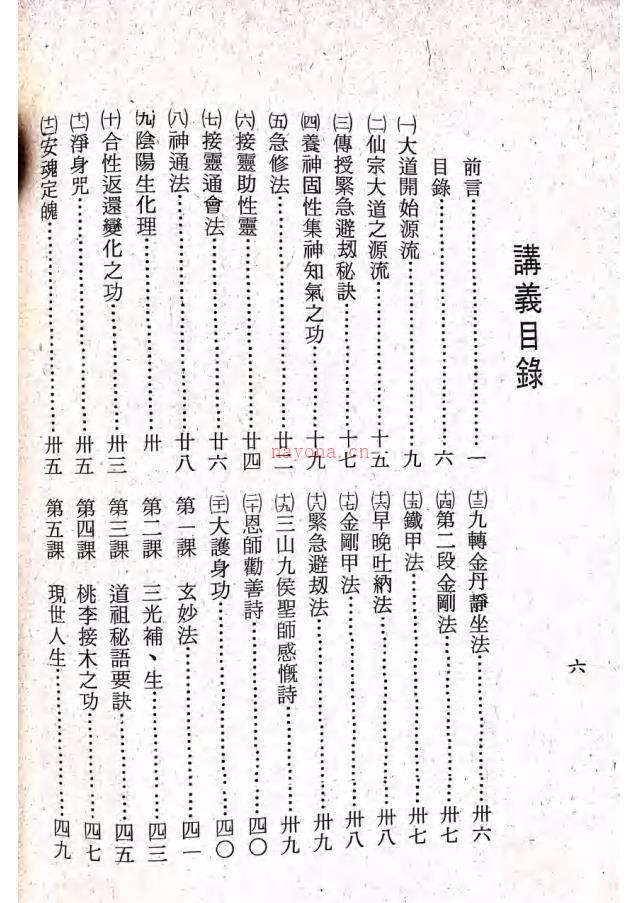 講義目錄
前言⋯⋯⋯⋯一
目錄⋯⋯⋯⋯六
㈠大道開始源流⋯⋯⋯⋯九
㈡仙宗大道之源流⋯⋯⋯⋯十五
㈢傳授緊急避刼秘訣⋯⋯⋯⋯十七
㈣養神固性集神知氣之功⋯⋯⋯⋯十九
㈤急修法⋯⋯⋯⋯廿二
㈥接靈助性靈⋯⋯⋯⋯廿四
㈦接靈通會法⋯⋯⋯⋯廿六
㈧神通法⋯⋯⋯⋯廿八
㈨陰陽生化理⋯⋯⋯⋯卅
㈩合性返還變化之功⋯⋯⋯⋯卅三
(十一)淨身咒⋯⋯⋯⋯卅五
(十二)安魂定魄⋯⋯⋯⋯卅五
(十三)九轉金丹靜坐法⋯⋯⋯⋯卅六
(十四)第二段金剛法⋯⋯⋯⋯卅七
(十五)鐵甲法⋯⋯⋯⋯卅七
(十六)早晚吐納法⋯⋯⋯⋯卅八
(十七)金剛甲法⋯⋯⋯⋯卅八
(十八)緊急避刼法⋯⋯⋯⋯卅九
(十九)三山九侯聖師感慨詩⋯⋯⋯⋯卅九
(二十)恩師勸善詩⋯⋯⋯⋯四〇
(二一)大護身功⋯⋯⋯⋯四〇
第一課 玄妙法⋯⋯⋯⋯四一
第二課 三光補、生⋯⋯⋯⋯四三
第三課 道祖秘語要訣⋯⋯⋯⋯四五
第四課 桃李接木之功⋯⋯⋯⋯四七
第五課 現世人生⋯⋯⋯⋯四九
六
nayona.cn